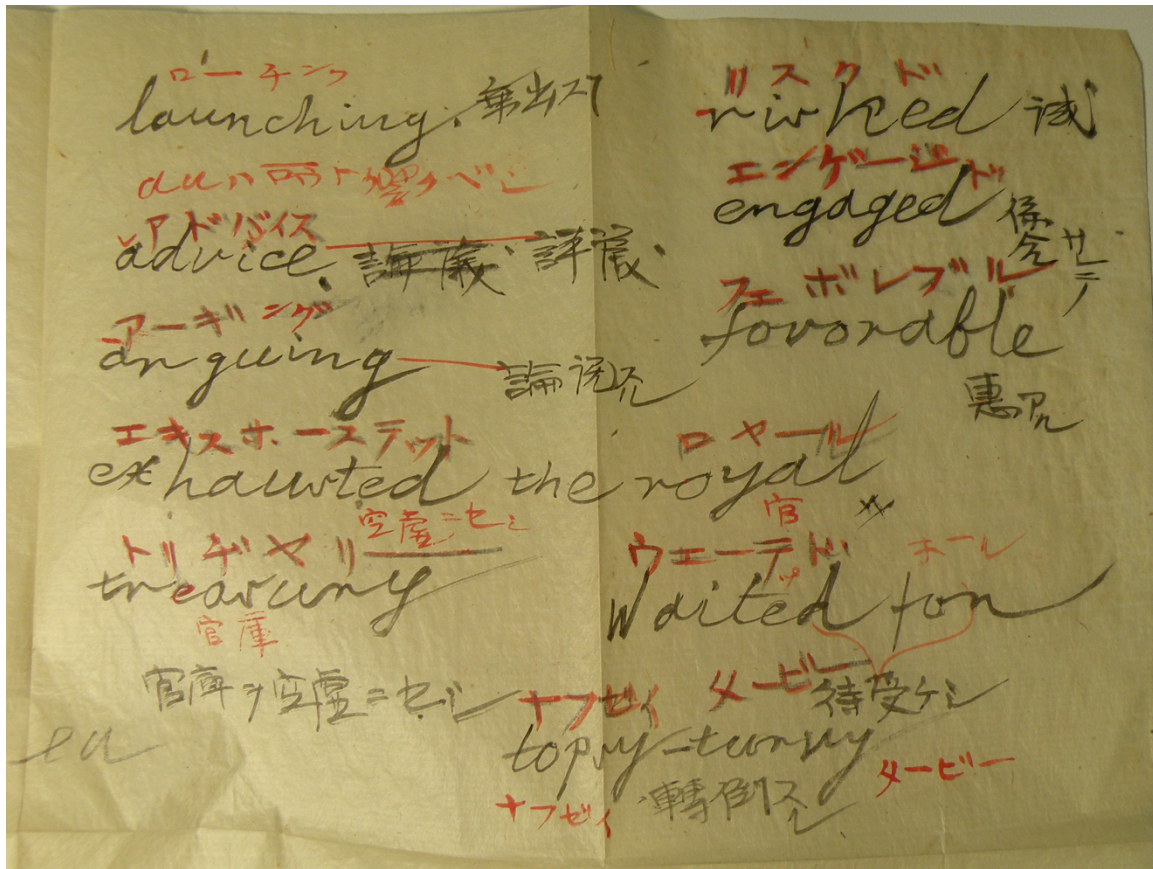 ローチンク
launching. 乗出スヿ
auハ丽ト響クベシ
アドバイス
advice. 論儀、評儀、
アーギング
arguing 論説スル
エキスホーステット ロヤール
exhausted the royal
空虚ニセシ 官
トリヂヤリ
treasury
官庫
官庫ヲ空虚ニセシ
eu
リスクド
risked 試
エンゲージド
engaged 係合サセテ
フェボレブル
favorable
惠アル
ウエーテッド ホール
Waited for
待受ケシ
ナフゼイ タービー
topsy-turvy
ナフゼイ 轉倒スル タービー